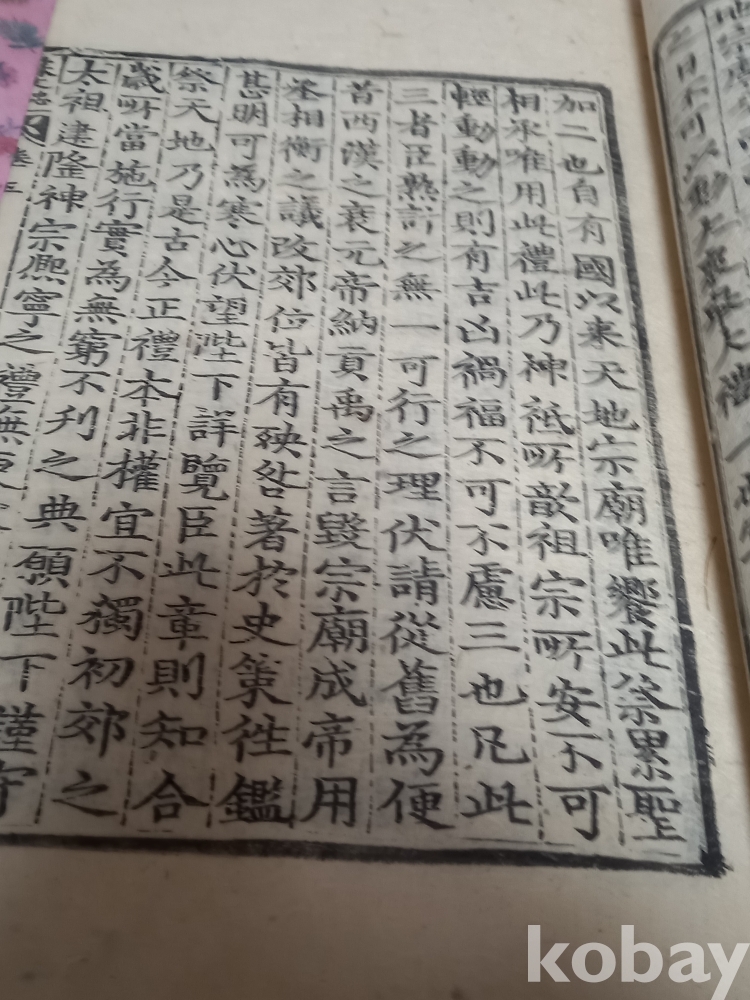 加二也自有國以来天地宗廟唯饗此祭累聖
相承唯用此禮此乃神祇所歆祖宗所安不可
輕動動之則有吉凶禍福不可不慮三也凡此
三者臣熟計之無一可行之理伏請從舊為便
昔西漢之衰元帝納貢禹之言毀宗廟成帝用
丞相衡之議改郊位皆有殃咎著於史策徃鑑
甚明可為寒心伏望陛下詳覽臣此章則知合
祭天地乃是古今正禮本非權宜不獨初郊之
歲所當施行實為無窮不刋之典願陛下謹守
太祖建隆神宗熙寧之禮無更
卷三
kobay